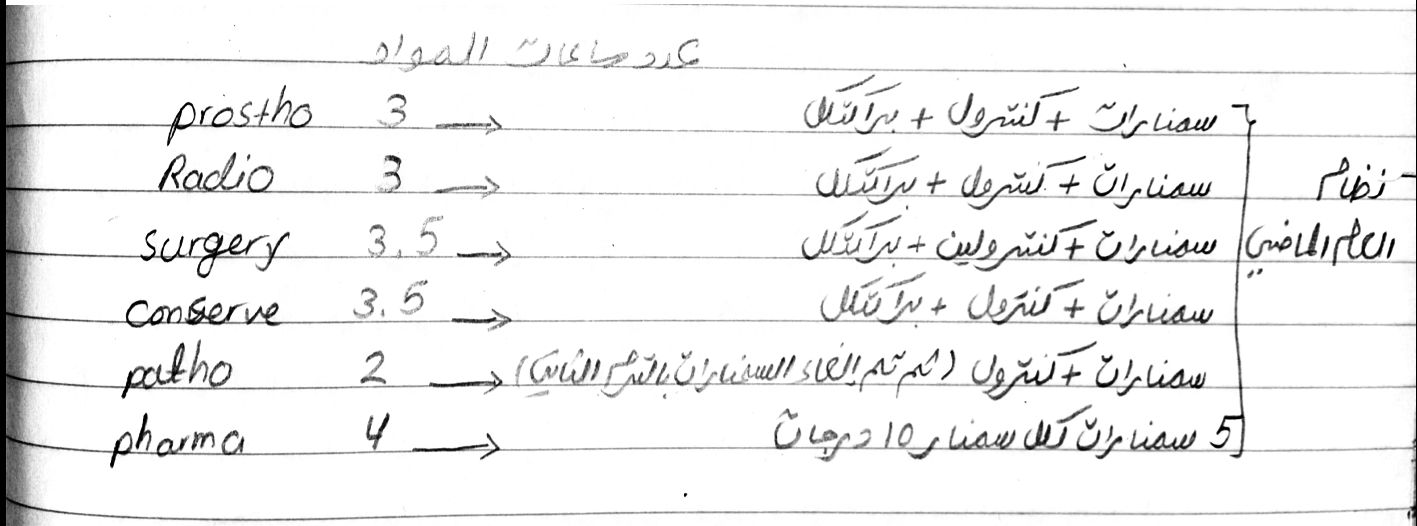 عدد ساعات المواد
prostho 3 → سمنارات + كنترول + براكتكل
Radio 3 → سمنارات + كنترول + براكتكل
surgery 3.5 → سمنارات + كنترولين + براكتكل
conserve 3.5 → سمنارات + كنترول + براكتكل
patho 2 → سمنارات + كنترول (ثم تم إلغاء السمنارات بالترم الثاني)
pharma 4 → 5 سمنارات كل سمنار 10 درجات
نظام
العام الماضي